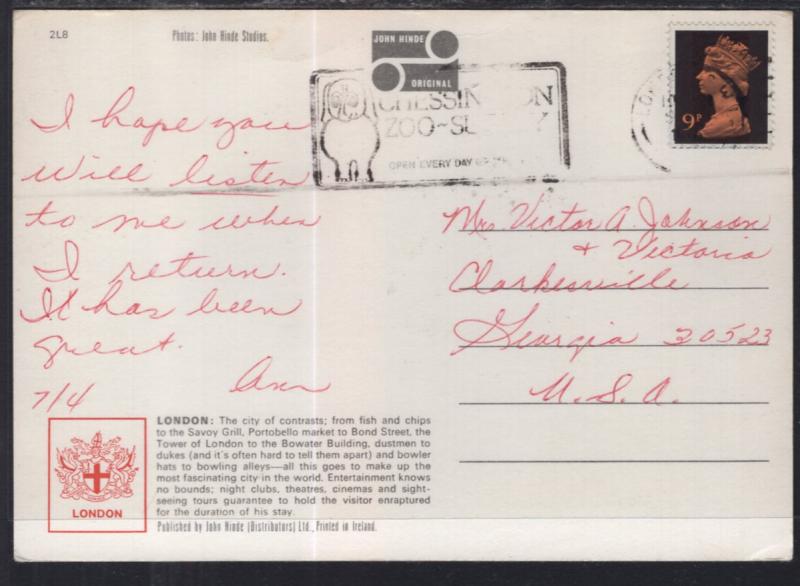 2L8
Photos: John Hinde Studios.
JOHN HINDE
ORIGINAL
CHESSINGTON
ZOO~SURREY
OPEN EVERY DAY
9P
I hope you
will listen
to me when
I return.
It has been
great.
Ann
7/4
Mrs Victor A. Johnson
+ Victoria
Clarkesville
Georgia 30523
U.S.A.
LONDON
LONDON: The city of contrasts; from fish and chips
to the Savoy Grill, Portobello market to Bond Street, the
Tower of London to the Bowater Building, dustmen to
dukes (and it's often hard to tell them apart) and bowler
hats to bowling alleys—all this goes to make up the
most fascinating city in the world. Entertainment knows
no bounds; night clubs, theatres, cinemas and sight-
seeing tours guarantee to hold the visitor enraptured
for the duration of his stay.
Published by John Hinde (Distributors) Ltd., Printed in Ireland.